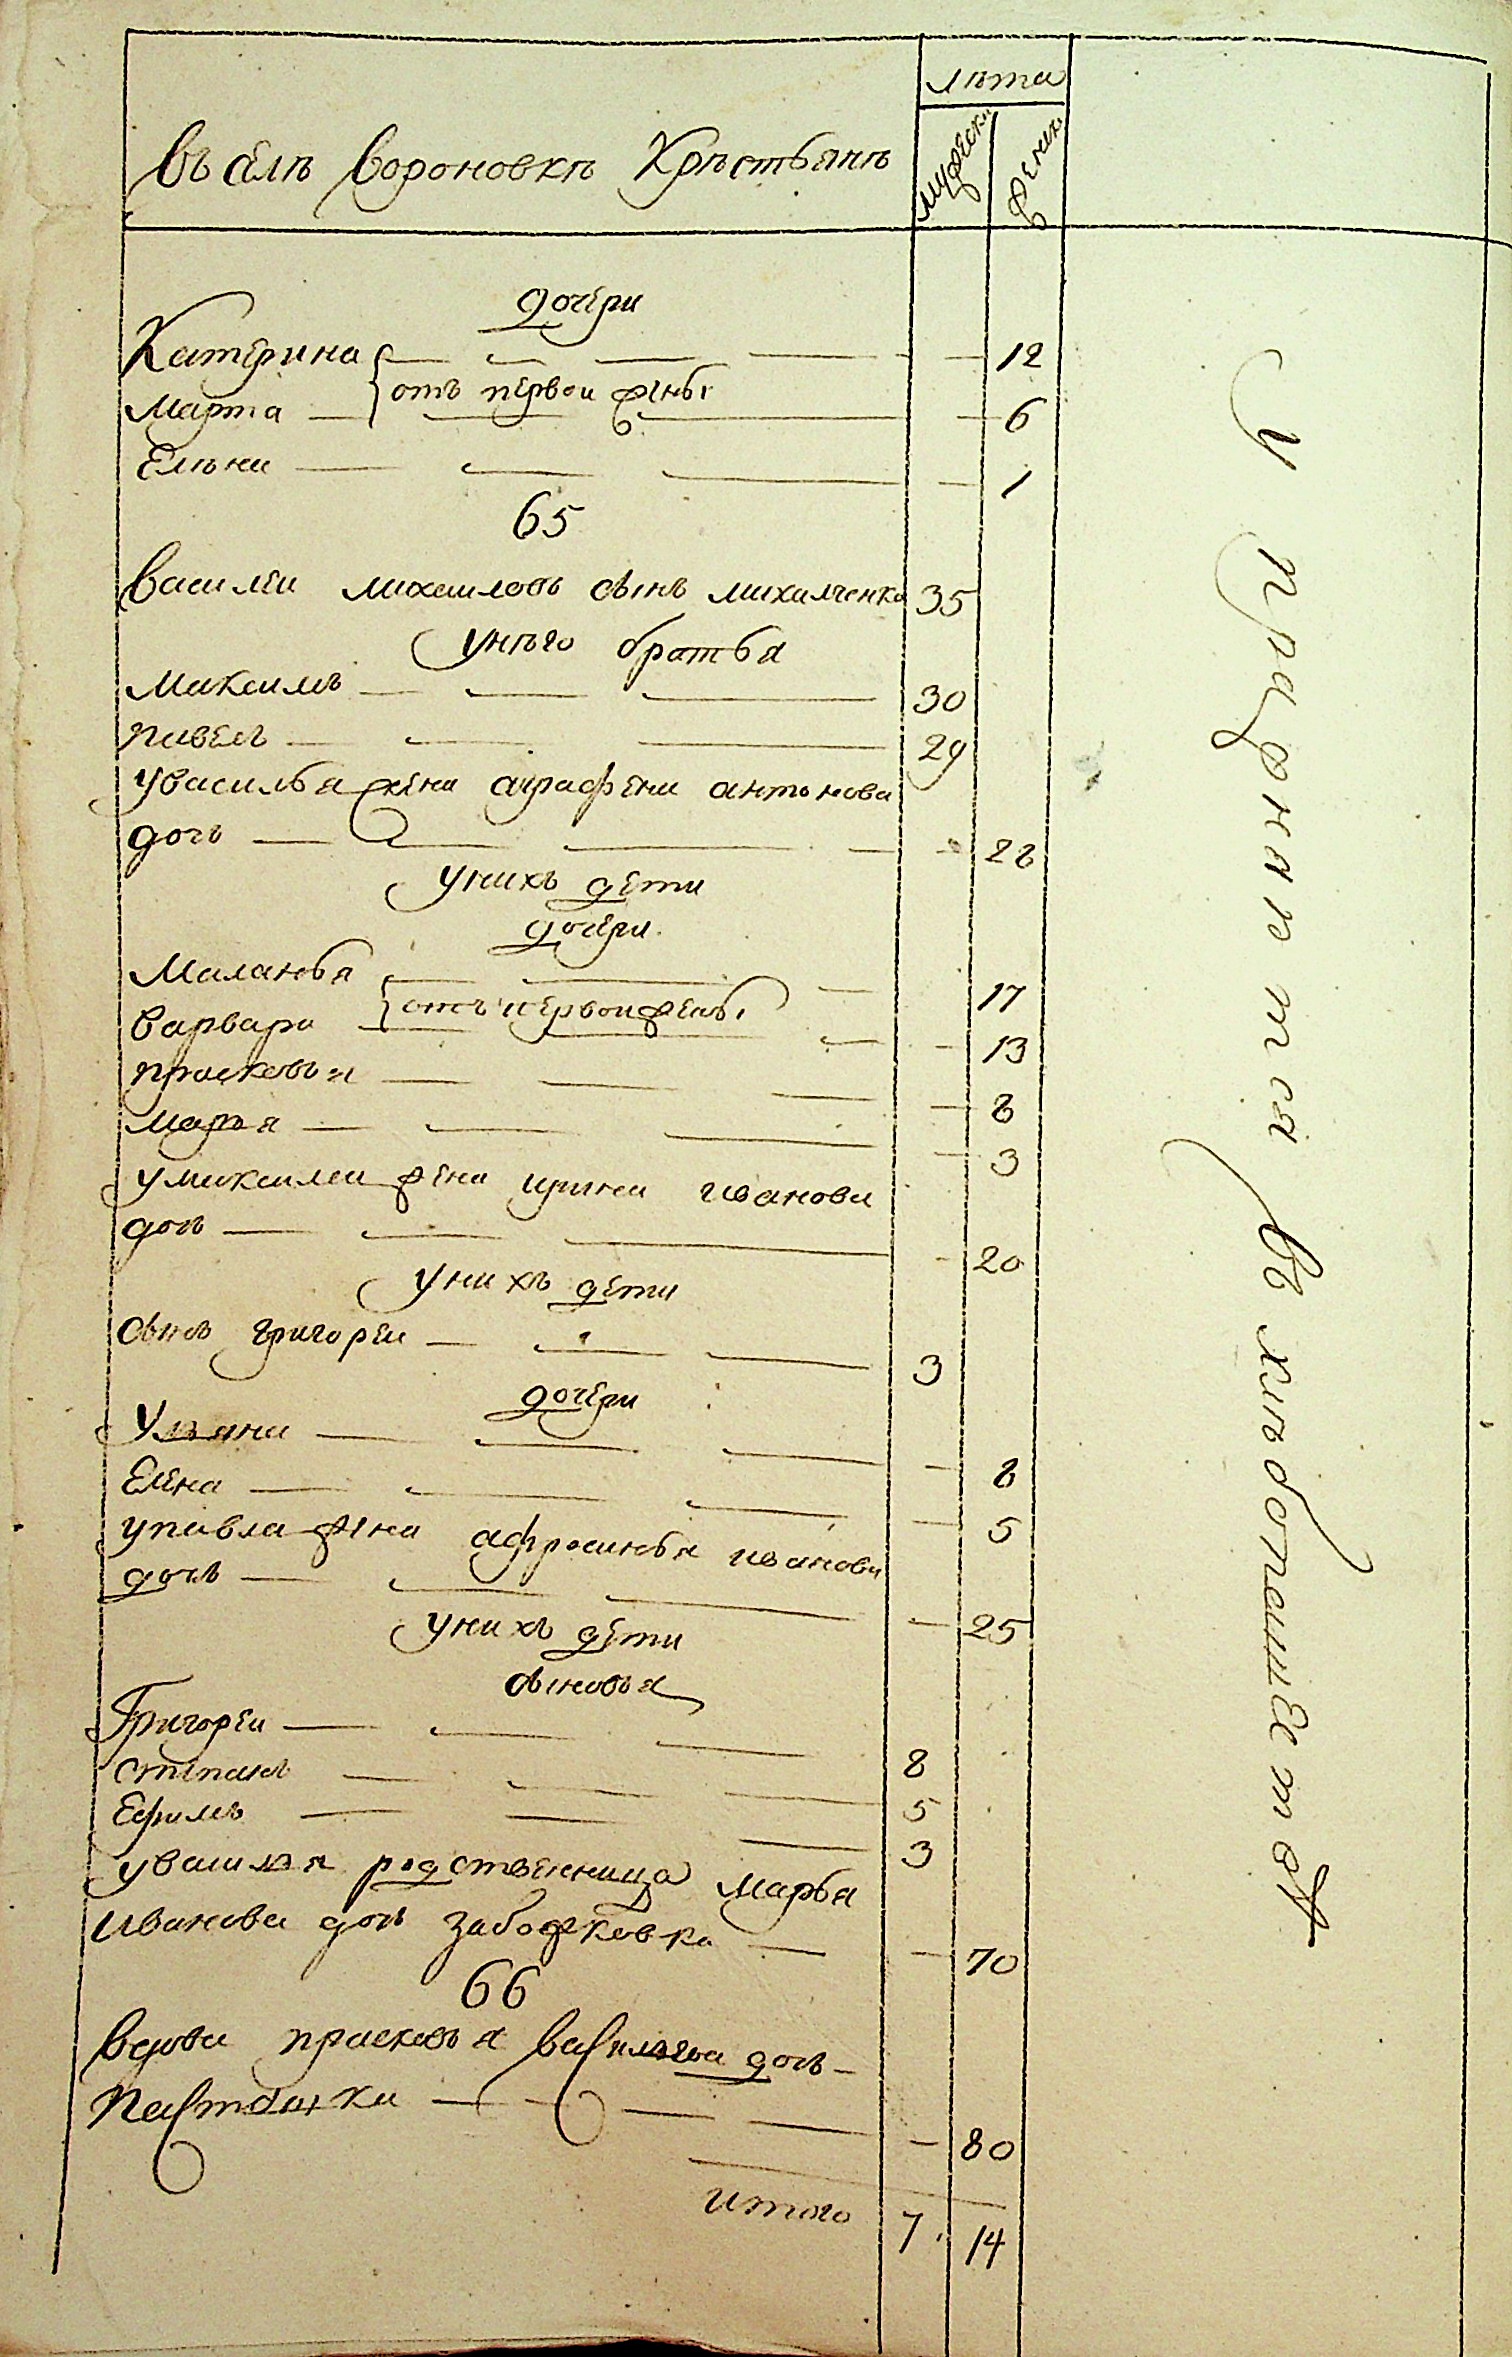 лѣта
въ сѣлѣ вороновкѣ крѣстьянъ
мужеска
женска
дочери
Катерина 12
отъ первои жены
Марта 6
Елѣна 1
65
василеи михаиловъ сынъ михалченко 35
у него братья
Максимъ 30
павелъ 29
у василья жена аграфена антонова
дочь 28
у нихъ дети
дочери
Маланья 17
отъ первои жены
варвара 13
прасковья 8
марья 3
у максима жена ирина иванова
дочь 20
у нихъ дети
сынъ григореи 3
дочери
Ульяна 8
Елена 5
у павла жена афросинья иванова
дочь 25
у нихъ дети
сыновья
Григореи 8
степанъ 5
Ефимъ 3
у василья родственница марья
иванова дочь забожковка 70
66
вдова прасковья васильева дочь
80
итого 7 14
упражняется въ хлебопашестве